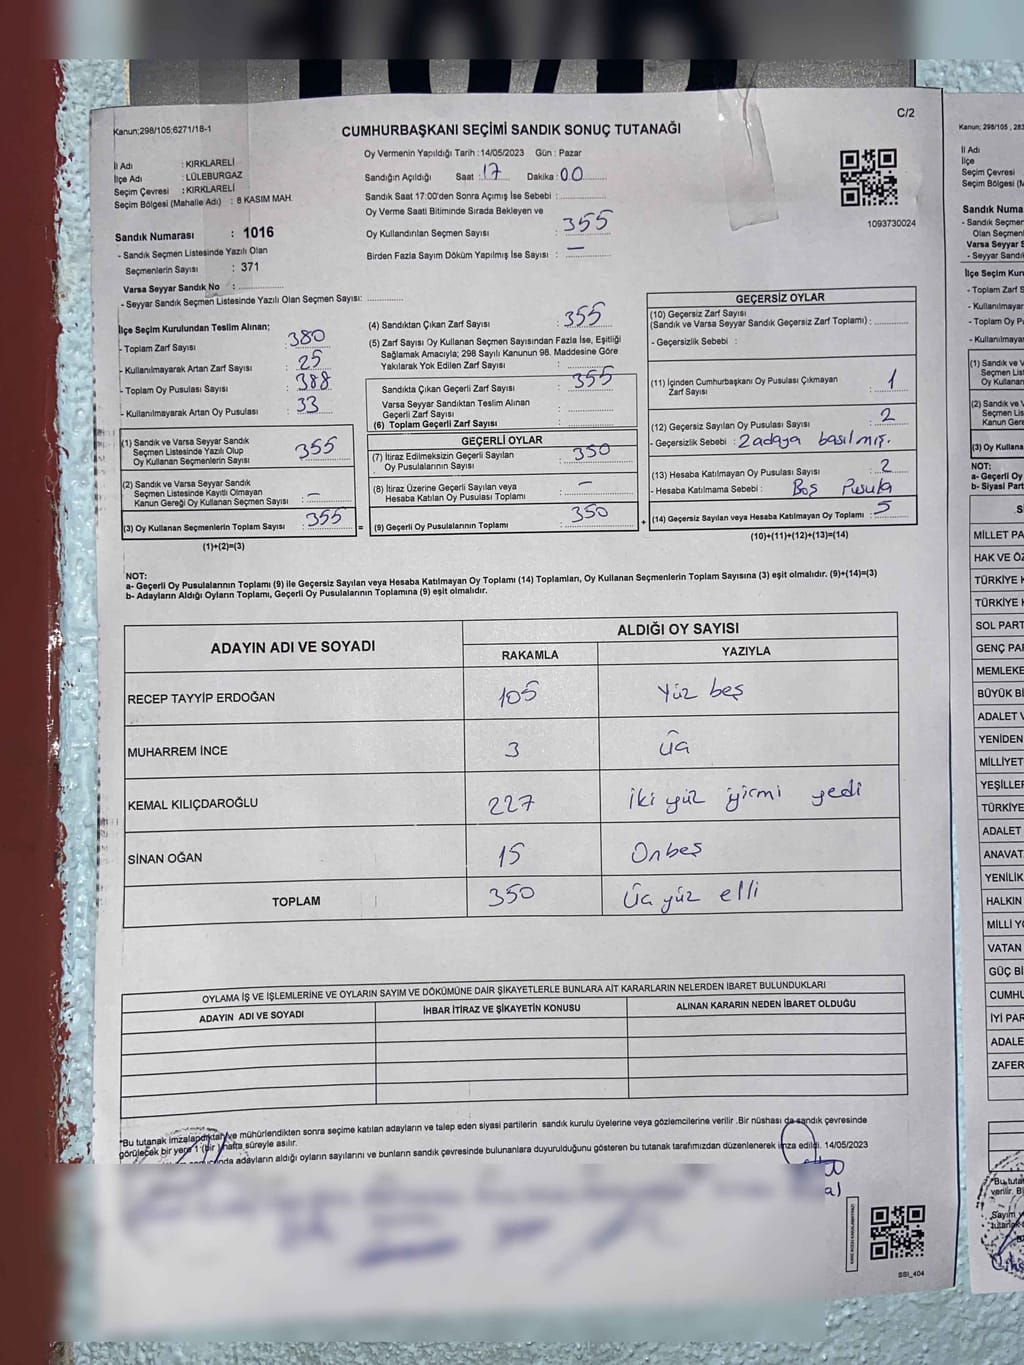 C/2
Kanun;298/105;6271/18-1
CUMHURBAŞKANI SEÇİMİ SANDIK SONUÇ TUTANAĞI
Oy Vermenin Yapıldığı Tarih :14/05/2023 Gün : Pazar
İl Adı : KIRKLARELİ
İlçe Adı : LÜLEBURGAZ
Seçim Çevresi : KIRKLARELİ
Seçim Bölgesi (Mahalle Adı) : 8 KASIM MAH.
Sandığın Açıldığı Saat : 17 Dakika : 00
Sandık Saat 17:00'den Sonra Açımış İse Sebebi :
Oy Verme Saati Bitiminde Sırada Bekleyen ve
Oy Kullandırılan Seçmen Sayısı : 355
Birden Fazla Sayım Döküm Yapılmış İse Sayısı : –
1093730024
Sandık Numarası : 1016
- Sandık Seçmen Listesinde Yazılı Olan
Seçmenlerin Sayısı : 371
Varsa Seyyar Sandık No :
- Seyyar Sandık Seçmen Listesinde Yazılı Olan Seçmen Sayısı:
İlçe Seçim Kurulundan Teslim Alınan;
- Toplam Zarf Sayısı : 380
- Kullanılmayarak Artan Zarf Sayısı : 25
- Toplam Oy Pusulası Sayısı : 388
- Kullanılmayarak Artan Oy Pusulası : 33
(1) Sandık ve Varsa Seyyar Sandık
Seçmen Listesinde Yazılı Olup
Oy Kullanan Seçmenlerin Sayısı : 355
(2) Sandık ve Varsa Seyyar Sandık
Seçmen Listesinde Kayıtlı Olmayan
Kanun Gereği Oy Kullanan Seçmen Sayısı : –
(3) Oy Kullanan Seçmenlerin Toplam Sayısı : 355 =
(1)+(2)=(3)
(4) Sandıktan Çıkan Zarf Sayısı : 355
(5) Zarf Sayısı Oy Kullanan Seçmen Sayısından Fazla İse, Eşitliği
Sağlamak Amacıyla; 298 Sayılı Kanunun 98. Maddesine Göre
Yakılarak Yok Edilen Zarf Sayısı :
Sandıkta Çıkan Geçerli Zarf Sayısı : 355
Varsa Seyyar Sandıktan Teslim Alınan
Geçerli Zarf Sayısı :
(6) Toplam Geçerli Zarf Sayısı :
GEÇERLİ OYLAR
(7) İtiraz Edilmeksizin Geçerli Sayılan
Oy Pusulalarının Sayısı : 350
(8) İtiraz Üzerine Geçerli Sayılan veya
Hesaba Katılan Oy Pusulaları Toplamı : –
(9) Geçerli Oy Pusulalarının Toplamı : 350 +
GEÇERSİZ OYLAR
(10) Geçersiz Zarf Sayısı
(Sandık ve Varsa Seyyar Sandık Geçersiz Zarf Toplamı) :
- Geçersizlik Sebebi :
(11) İçinden Cumhurbaşkanı Oy Pusulası Çıkmayan
Zarf Sayısı : 1
(12) Geçersiz Sayılan Oy Pusulası Sayısı : 2
- Geçersizlik Sebebi : 2 adaya basılmış.
(13) Hesaba Katılmayan Oy Pusulası Sayısı : 2
- Hesaba Katılmama Sebebi : Boş Pusula
(14) Geçersiz Sayılan veya Hesaba Katılmayan Oy Toplamı : 5
(10)+(11)+(12)+(13)=(14)
NOT:
a- Geçerli Oy Pusulalarının Toplamı (9) ile Geçersiz Sayılan veya Hesaba Katılmayan Oy Toplamı (14) Toplamları, Oy Kullanan Seçmenlerin Toplam Sayısına (3) eşit olmalıdır. (9)+(14)=(3)
b- Adayların Aldığı Oyların Toplamı, Geçerli Oy Pusulalarının Toplamına (9) eşit olmalıdır.
ADAYIN ADI VE SOYADI ALDIĞI OY SAYISI
RAKAMLA YAZIYLA
RECEP TAYYİP ERDOĞAN 105 Yüz beş
MUHARREM İNCE 3 Üç
KEMAL KILIÇDAROĞLU 227 İki yüz yirmi yedi
SİNAN OĞAN 15 Onbeş
TOPLAM 350 Üç yüz elli
OYLAMA İŞ VE İŞLEMLERİNE VE OYLARIN SAYIM VE DÖKÜMÜNE DAİR ŞİKAYETLERLE BUNLARA AİT KARARLARIN NELERDEN İBARET BULUNDUKLARI
ADAYIN ADI VE SOYADI İHBAR İTİRAZ VE ŞİKAYETİN KONUSU ALINAN KARARIN NEDEN İBARET OLDUĞU
"Bu tutanak imzalandıktan ve mühürlendikten sonra seçime katılan adayların ve talep eden siyasi partilerin sandık kurulu üyelerine veya gözlemcilerine verilir .Bir nüshası da sandık çevresinde
görülecek bir yere 1 (bir ) hafta süreyle asılır.
adayların aldığı oyların sayılarını ve bunların sandık çevresinde bulunanlara duyurulduğunu gösteren bu tutanak tarafımızdan düzenlenerek imza edildi. 14/05/2023
SSİ_404
Kanun; 298/105
İl Adı
İlçe
Seçim Çevresi
Seçim Bölgesi
Sandık Numa
- Sandık Seçmen
Olan Seçmen
Varsa Seyyar S
- Seyyar Sandı
İlçe Seçim Kuru
- Toplam Zarf S
- Kullanılmayar
- Toplam Oy P
- Kullanılmaya
(1) Sandık ve V
Seçmen Lis
Oy Kullanan
(2) Sandık ve V
Seçmen List
Kanun Gere
(3) Oy Kullana
NOT:
a- Geçerli Oy
b- Siyasi Part
MİLLET PA
HAK VE ÖZ
TÜRKİYE K
TÜRKİYE
SOL PART
GENÇ PAR
MEMLEKE
BÜYÜK Bİ
ADALET V
YENİDEN
MİLLİYET
YEŞİLLER
TÜRKİYE
ADALET
ANAVAT
YENİLİK
HALKIN
MİLLİ YO
VATAN
GÜÇ Bİ
CUMHU
İYİ PAR
ADALE
ZAFER
"Bu tuta
verilir. B
Sayım v